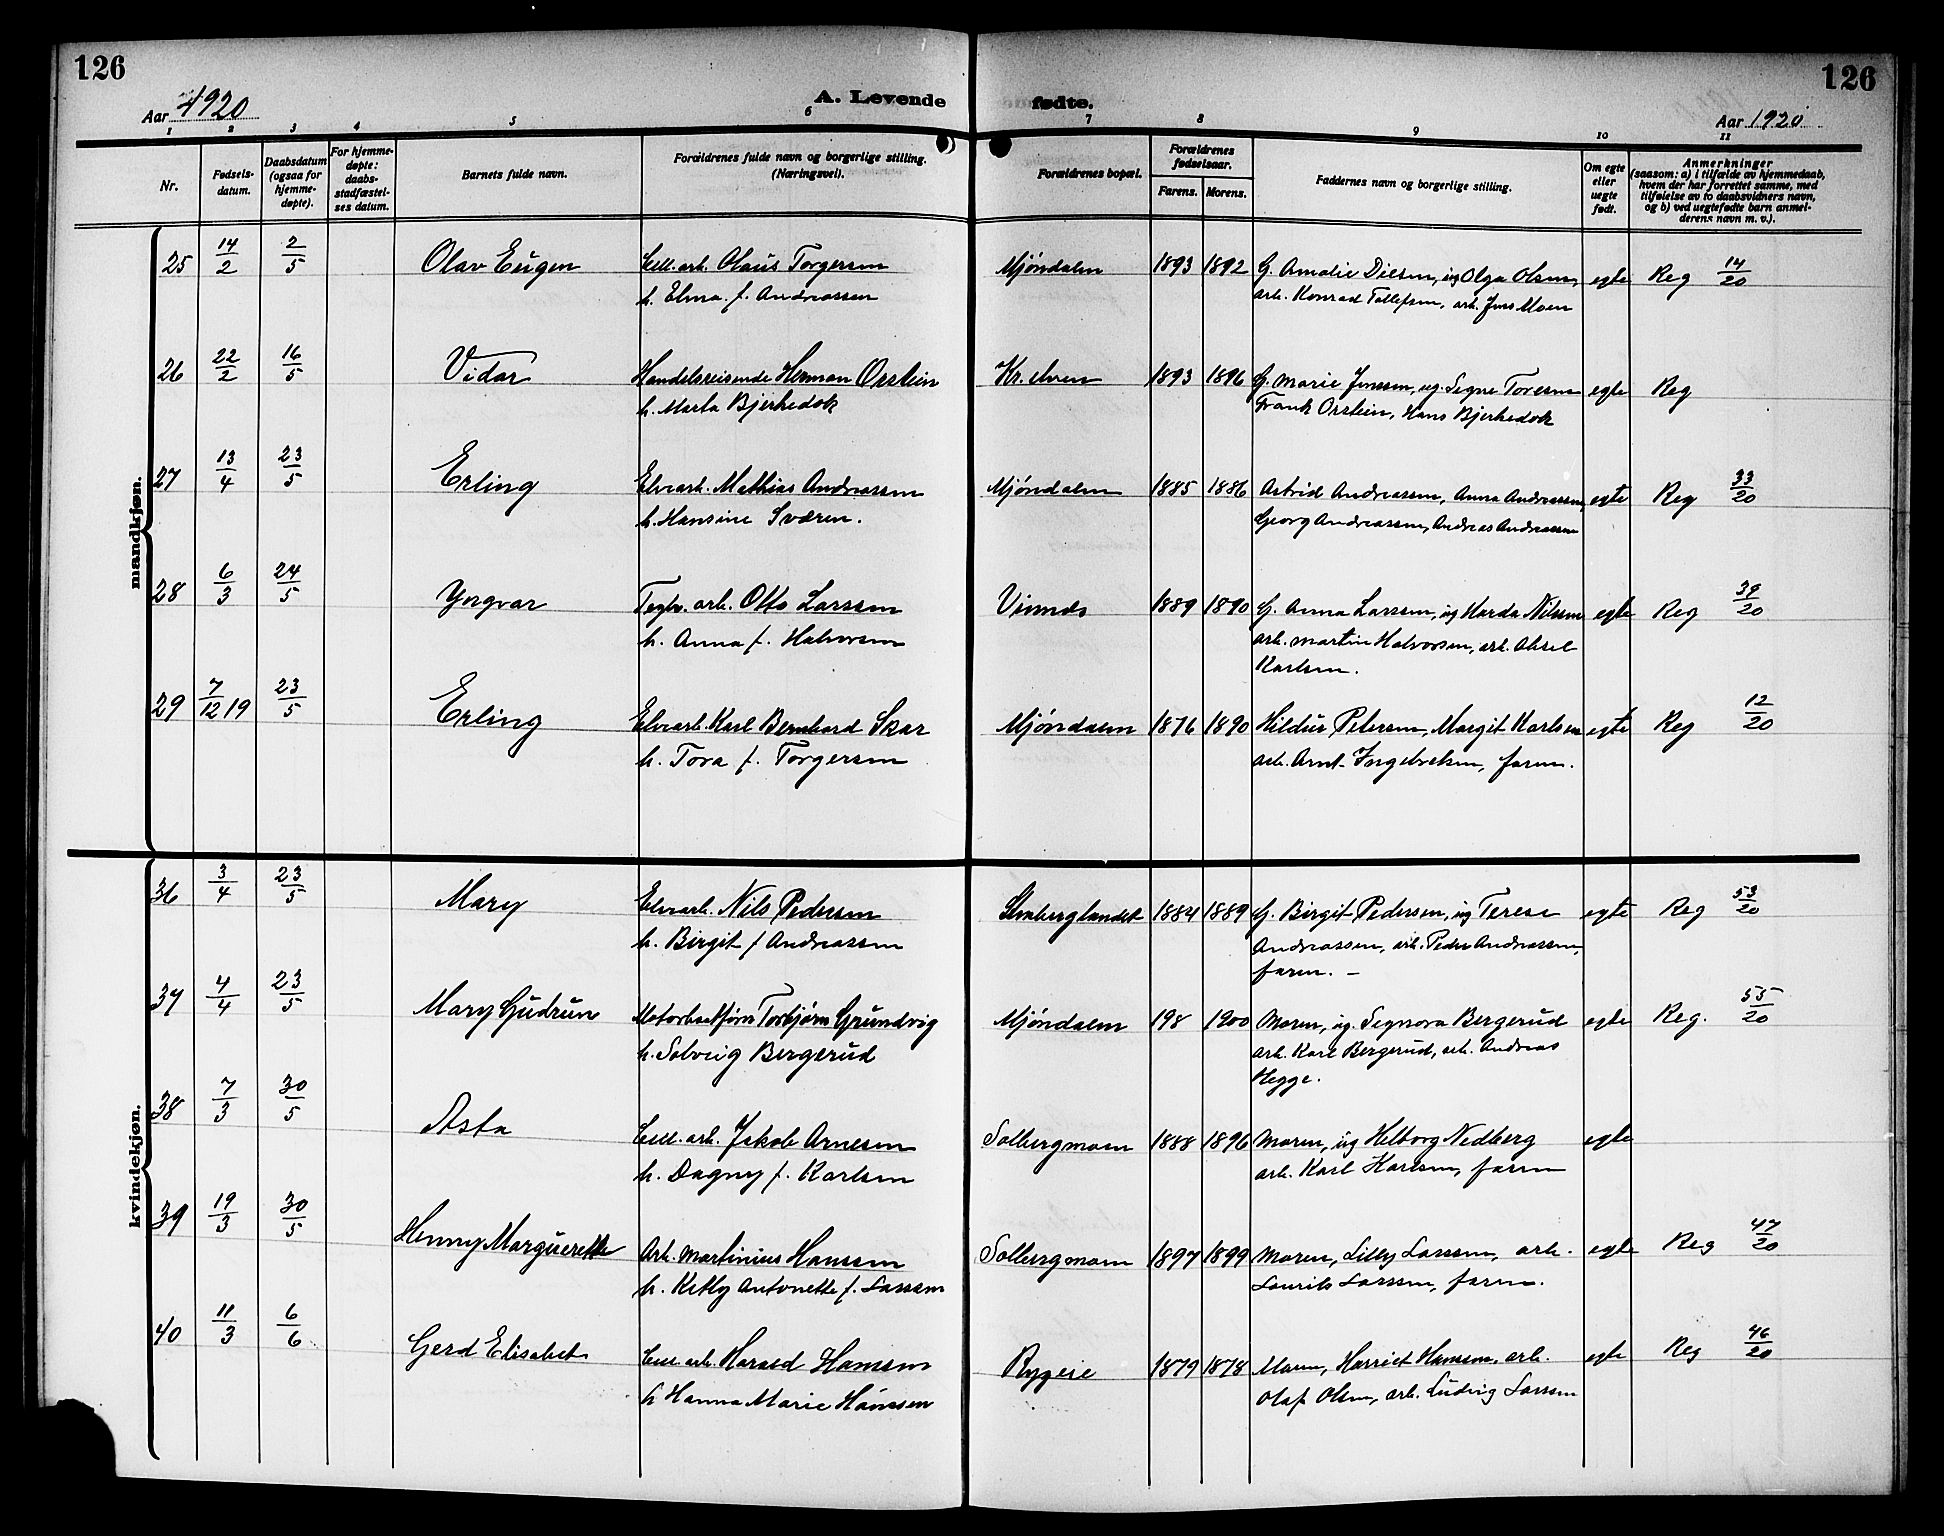 126
126
Aar 1920
A. Levende fødte.
Aar 1920
1 2 3 4 5 6 7 8 9 10 11
Nr.
Fødsels-
datum.
Daabsdatum
(ogsaa for
hjemme-
døpte).
For hjemme-
døpte:
daabs-
stadfæstel-
ses datum.
Barnets fulde navn.
Forældrenes fulde navn og borgerlige stilling.
(Næringsvei).
Forældrenes bopæl.
Forældrenes
fødselsaar.
Farens. Morens.
Faddernes navn og borgerlige stilling.
Om egte
eller
uegte
født.
Anmerkninger
(saasom: a) i tilfælde av hjemmedaab,
hvem der har forrettet samme, med
tilføielse av to daabsvidners navn,
og b) ved uegtefødte barn anmel-
derens navn m. v.).
mandkjøn.
25 14/2 2/5 Olav Eugen Cell. arb. Olaus Torgersen Mjøndalen 1893 1892 G. Amalie Diesen, ug Olga Olsen, egte Reg 14/20
h. Elma f. Andreassen arb. Konrad Tollefsen, arb. Jens Moen
26 22/2 16/5 Vidar Handelsreisende Herman Orstein Kr. elven 1893 1896 G. Marie Jenssen, ug. Signe Toresen egte Reg
h. Marta Bjerkedok Frank Orstein, Hans Bjerkedok
27 13/4 23/5 Erling Elvearb. Mathias Andreassen Mjøndalen 1885 1886 Astrid Andreassen, Anna Andreassen, egte Reg 33/20
h. Hansine Sværen. Georg Andreassen, Andreas Andreassen
28 6/3 24/5 Yngvar Teglv. arb. Otto Larssen Vinnes 1889 1890 G. Anna Larssen, ug Harda Nilssen egte Reg 39/20
h. Anna f. Halvorsen arb. Martin Halvorsen, arb. Aksel
Karlsen.
29 7/12 19 23/5 Erling Elvearb. Karl Bernhard Skar Mjøndalen 1876 1890 Hildur Petersen, Margit Karlsen egte Reg 12/20
h. Tora f. Torgersen arb. Arnt Ingebretsen, faren.
kvindekjøn.
36 3/4 23/5 Mary Elvearb. Nils Pedersen Stenberglandet 1884 1889 G. Birgit Pedersen, ug Terese egte Reg 53/20
h. Birgit f Andreassen Andreassen, arb. Peder Andreassen,
faren. –
37 4/4 23/5 Mary Gudrun Motorbaatfører Torbjørn Grundvig Mjøndalen 198 1900 Moren, ug. Signora Bergerud egte Reg. 55/20
h. Solveig Bergerud arb. Karl Bergerud, arb. Andreas
Hegge.
38 7/3 30/5 Asta Cell. arb. Jakob Arnesen Solbergmoen 1888 1896 Moren, ug Helborg Nedberg egte
h. Dagny f. Karlsen arb. Karl Karlsen, faren
39 19/3 30/5 Henny Marguerethe Arb. Martinius Hanssen Solbergmoen 1897 1899 Moren, Lilly Larssen, arb. egte Reg 47/20
h. Ketty Antonette f. Larssen Laurits Larssen, faren.
40 11/3 6/6 Gerd Elisabet Cell. arb. Harald Hanssen Rygeie 1879 1878 Moren, Harriet Hanssen, arb. egte Reg 46/20
h Hanna Marie Hanssen Olaf Olsen, arb. Ludvig Larssen